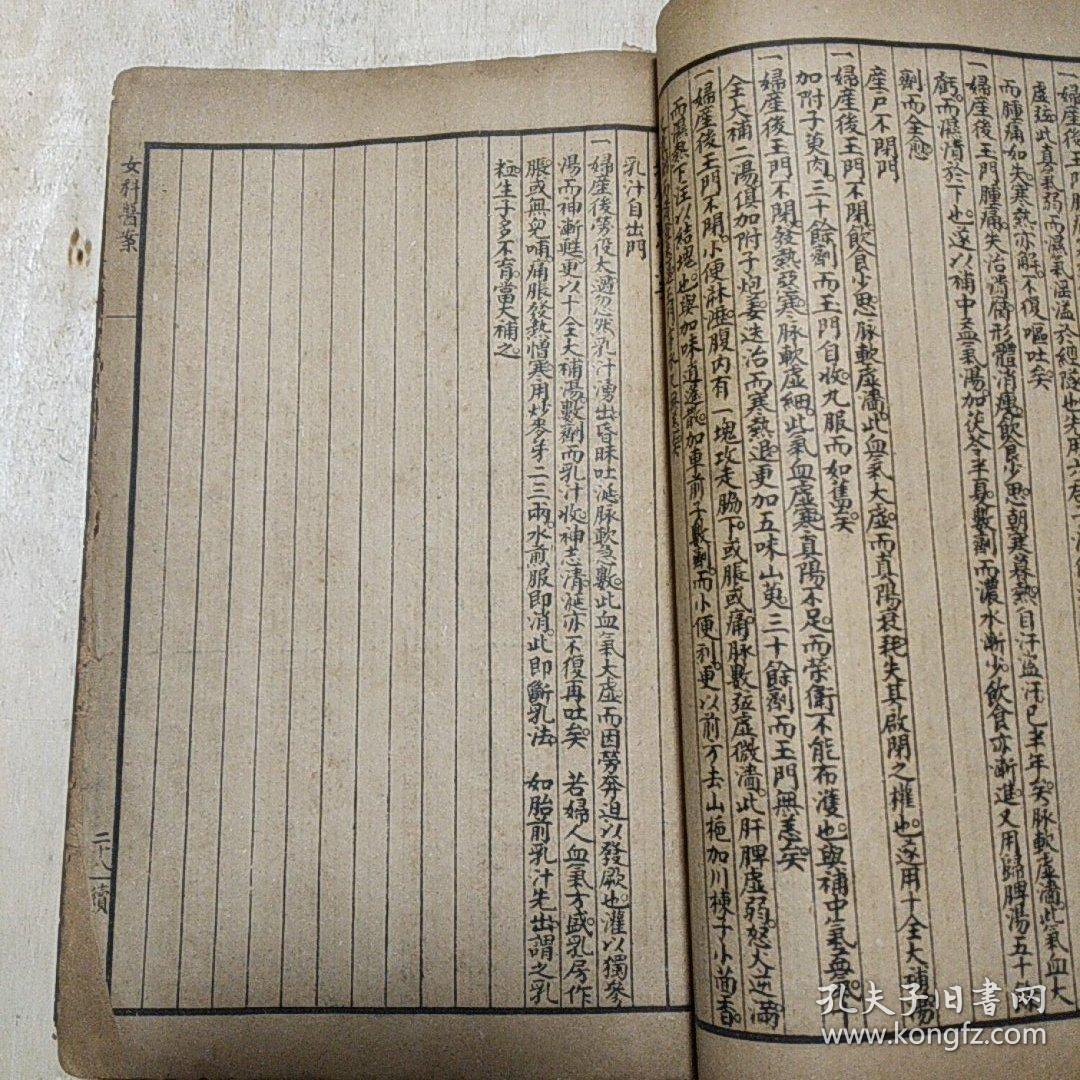 而腫痛如失寒熱亦解不復嘔吐矣
一婦產後玉門腫痛失治潰腐形體消瘦飲食少思朝寒暮熱自汗盜汗已半年矣脉軟虛濇此氣血大
虧而濕潰於下也遂以補中益氣湯加茯苓半夏數劑而濃水漸少飲食亦漸進又用歸脾湯五十餘
劑而全愈
產戶不閉門
一婦產後玉門不閉飲食少思脉軟虛濇此血氣大虛而真陽衰耗失其啟閉之權也遂用十全大補湯
加附子萸肉三十餘劑而玉門自收丸服而如舊矣
一婦產後玉門不閉發熱惡寒脉軟虛細此氣血虛寒真陽不足而榮衛不能布濩也與補中益氣十
全大補二湯俱加附子炮姜迭治而寒熱退更加五味山萸三十餘劑而玉門無恙矣
一婦產後玉門不閉小便淋澀腹內有一塊攻走脇下或脹或痛脉數弦虛微濇此肝脾虛弱怒火逆滿
而濕熱下注以結塊也與加味逍遙散加車前子數劑而小便利更以前方去山梔加川楝子小茴香
乳汁自出門
一婦產後勞役太過忽然乳汁湧出昏昧吐涎脉軟急數此血氣大虛而因勞奔迫以發厥也灌以獨參
湯而神漸甦更以十全大補湯數劑而乳汁收神志清涎亦不復再吐矣 若婦人血氣方盛乳房作
脹或無兒哺痛脹發熱憎寒用炒麥芽二三兩水煎服即消此即斷乳法 如胎前乳汁先出謂之乳
粒生子多不育當大補之
女科醫案
二十八續
孔夫子旧书网
www.kongfz.com